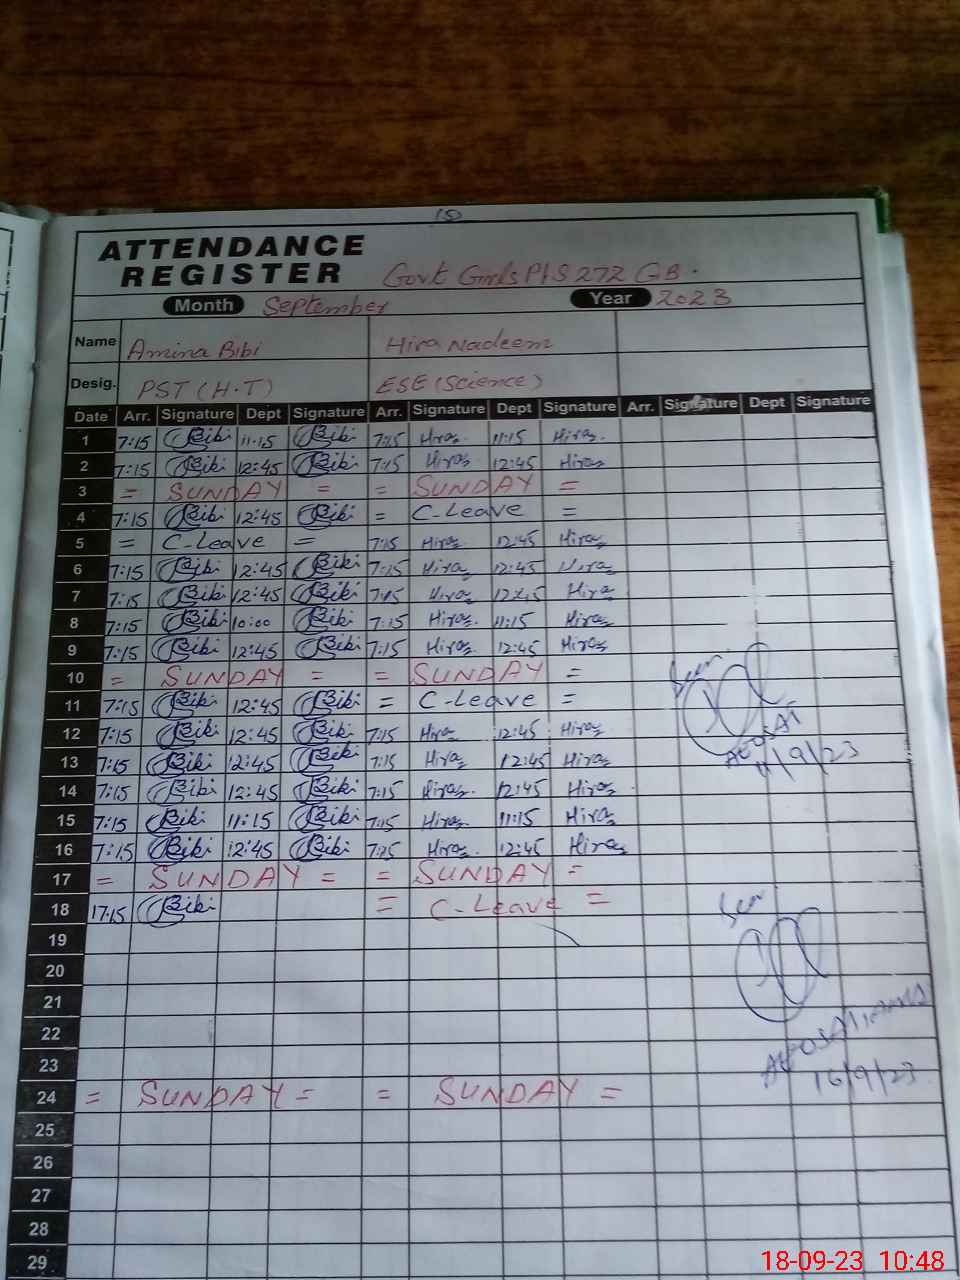 15
ATTENDANCE
REGISTER Govt Girls P/S 272 GB.
Month September Year 2023
Name Amina Bibi Hira Nadeem
Desig. PST (H.T) ESE (Science)
Date Arr. Signature Dept Signature Arr. Signature Dept Signature Arr. Signature Dept Signature
1 7:15 Bibi 11:15 Bibi 7:15 Hira 11:15 Hira
2 7:15 Bibi 12:45 Bibi 7:15 Hira 12:45 Hira
3 = SUNDAY = = SUNDAY =
4 7:15 Bibi 12:45 Bibi = C-Leave =
5 = C-Leave = 7:15 Hira 12:45 Hira
6 7:15 Bibi 12:45 Bibi 7:15 Hira 12:45 Hira
7 7:15 Bibi 12:45 Bibi 7:15 Hira 12:45 Hira
8 7:15 Bibi 10:00 Bibi 7:15 Hira 11:15 Hira
9 7:15 Bibi 12:45 Bibi 7:15 Hira 12:45 Hira
10 = SUNDAY = = SUNDAY =
11 7:15 Bibi 12:45 Bibi = C-Leave =
12 7:15 Bibi 12:45 Bibi 7:15 Hira 12:45 Hira
13 7:15 Bibi 12:45 Bibi 7:15 Hira 12:45 Hira
14 7:15 Bibi 12:45 Bibi 7:15 Hira 12:45 Hira
15 7:15 Bibi 11:15 Bibi 7:15 Hira 11:15 Hira
16 7:15 Bibi 12:45 Bibi 7:15 Hira 12:45 Hira
17 = SUNDAY = = SUNDAY =
18 17:15 Bibi = C-Leave =
19
20
21
22
23
24 = SUNDAY = = SUNDAY =
25
26
27
28
29
11/9/23
16/9/23
18-09-23 10:48